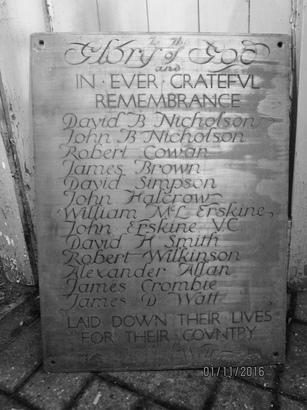 To the
Glory of God
and
IN · EVER GRATEFVL
REMEMBRANCE
David B Nicholson
John B Nicholson
Robert Cowan
James Brown
David Simpson
John Halcrow
William McL Erskine
John Erskine VC
David H Smith
Robert Wilkinson
Alexander Allan
James Crombie
James D Watt
LAID DOWN THEIR LIVES
FOR THEIR COVNTRY
01/11/2016